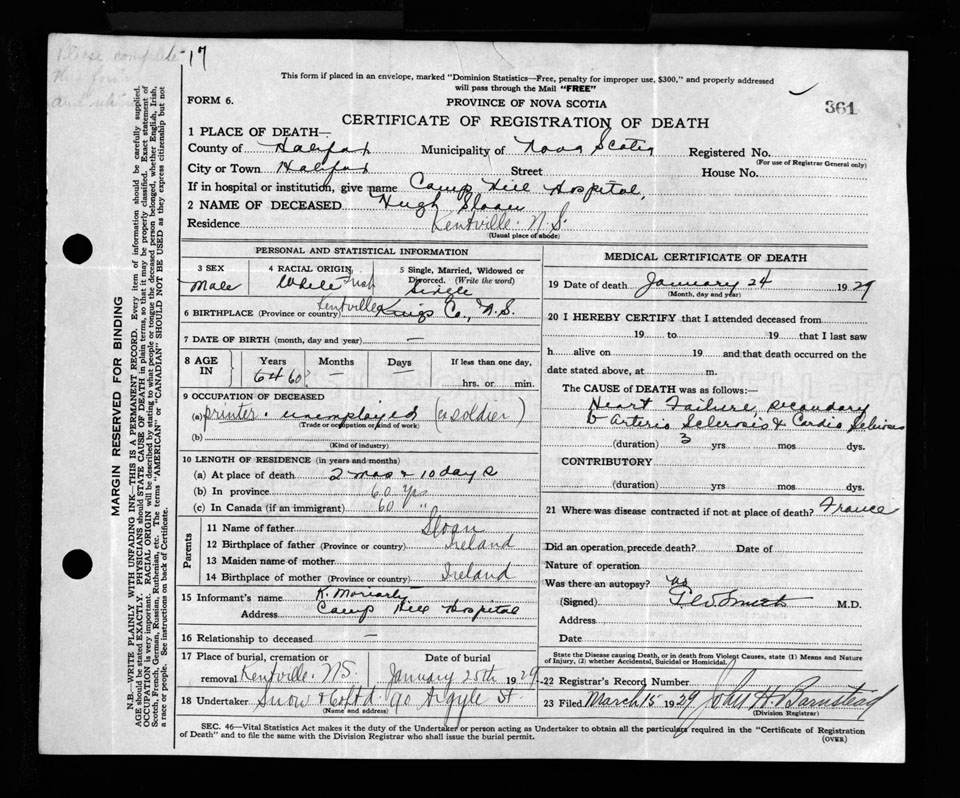 Please complete
this form
and return
17
This form if placed in an envelope, marked "Dominion Statistics—Free, penalty for improper use, $300," and properly addressed
will pass through the Mail "FREE"
FORM 6.
PROVINCE OF NOVA SCOTIA
361
CERTIFICATE OF REGISTRATION OF DEATH
1 PLACE OF DEATH—
County of Halifax Municipality of Nova Scotia Registered No.
(For use of Registrar General only)
City or Town Halifax Street House No.
If in hospital or institution, give name Camp Hill Hospital,
2 NAME OF DECEASED Hugh Sloan
Residence Kentville N.S.
(Usual place of abode)
PERSONAL AND STATISTICAL INFORMATION
3 SEX
Male
4 RACIAL ORIGIN
White Irish
5 Single, Married, Widowed or
Divorced. (Write the word)
Single
6 BIRTHPLACE (Province or country) Kentville Kings Co., N.S.
7 DATE OF BIRTH (month, day and year) —
8 AGE
IN
Years
64 60?
Months
—
Days
—
If less than one day,
hrs. or min.
9 OCCUPATION OF DECEASED
(a) printer. unemployed (a soldier)
(Trade or occupation or kind of work)
(b)
(Kind of industry)
10 LENGTH OF RESIDENCE (in years and months)
(a) At place of death 2 mos & 10 days
(b) In province 60 yrs
(c) In Canada (if an immigrant) 60 "
Parents
11 Name of father Sloan
12 Birthplace of father (Province or country) Ireland
13 Maiden name of mother
14 Birthplace of mother (Province or country) Ireland
15 Informant's name K. Moriarty
Address Camp Hill Hospital
16 Relationship to deceased —
17 Place of burial, cremation or
removal Kentville. NS
Date of burial
January 25th 1929
18 Undertaker Snow & Co Ltd 90 Argyle St
(Name and address)
MEDICAL CERTIFICATE OF DEATH
19 Date of death January 24 1929
(Month, day and year)
20 I HEREBY CERTIFY that I attended deceased from
19 to 19 that I last saw
h alive on 19 and that death occurred on the
date stated above, at m.
The CAUSE of DEATH was as follows:—
Heart Failure, secondary
to Arterio Sclerosis & Cardio Sclerosis
(duration) 3 yrs mos dys.
CONTRIBUTORY
(duration) yrs mos dys.
21 Where was disease contracted if not at place of death? France
Did an operation precede death? Date of
Nature of operation
Was there an autopsy? No
(Signed) Smith M.D.
Address
Date
State the Disease causing Death, or in death from Violent Causes, state (1) Means and Nature
of Injury, (2) whether Accidental, Suicidal or Homicidal.
22 Registrar's Record Number
23 Filed March 15 1929 John H. Barnstead
(Division Registrar)
SEC. 46—Vital Statistics Act makes it the duty of the Undertaker or person acting as Undertaker to obtain all the particulars required in the "Certificate of Registration
of Death" and to file the same with the Division Registrar who shall issue the burial permit.
(OVER)
MARGIN RESERVED FOR BINDING
N.B.—WRITE PLAINLY WITH UNFADING INK—THIS IS A PERMANENT RECORD. Every item of information should be carefully supplied.
AGE should be stated EXACTLY. PHYSICIANS should STATE CAUSE OF DEATH in plain terms, so that it may be properly classified. Exact statement of
OCCUPATION is very important. RACIAL ORIGIN will be described by stating to what people or tongue the deceased person belonged, whether English, Irish,
Scotch, French, German, Russian, Ruthenian, etc. The terms "AMERICAN" or "CANADIAN" SHOULD NOT BE USED as they express citizenship but not
a race or people. See instructions on back of Certificate.